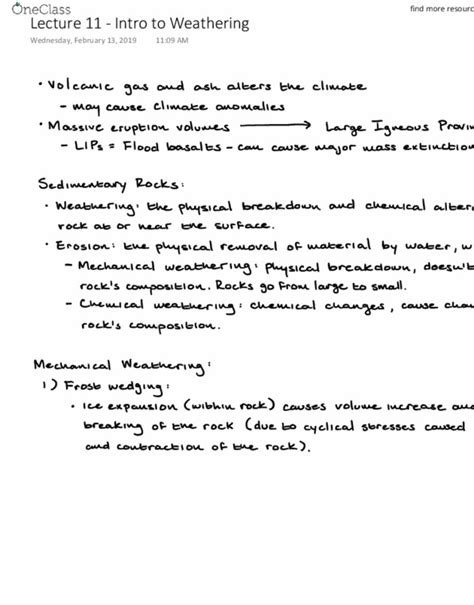 OneClass
find more resourc
Lecture 11 - Intro to Weathering
Wednesday, February 13, 2019 11:09 AM
• Volcanic gas and ash alters the climate
- may cause climate anomalies
• Massive eruption volumes → Large Igneous Provin
- LIPs = Flood basalts - can cause major mass extinction
Sedimentary Rocks:
• Weathering: the physical breakdown and chemical alter
rock at or near the surface.
• Erosion: the physical removal of material by water, w
- Mechanical weathering: physical breakdown, doesn't
rock's composition. Rocks go from large to small.
- Chemical weathering: chemical changes, cause chan
rock's composition.
Mechanical Weathering:
1) Frost wedging:
• Ice expansion (within rock) causes volume increase and
breaking of the rock (due to cyclical stresses caused
and contraction of the rock).